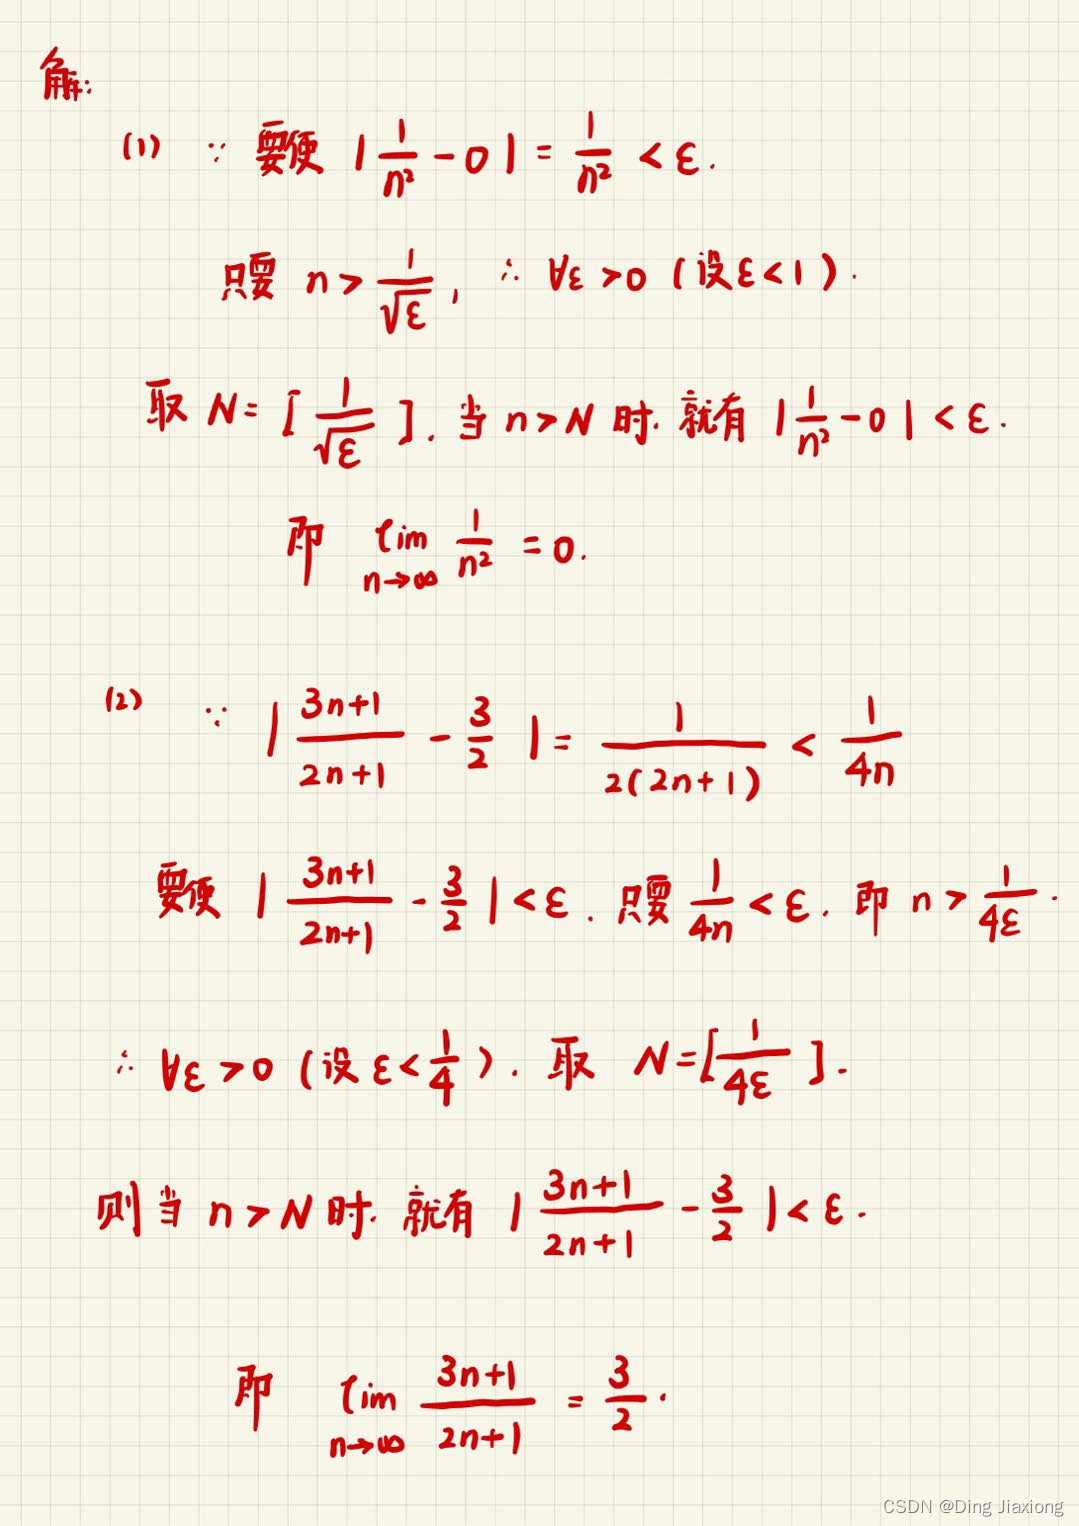 解:
(1) ∵ 要使 |1/n² - 0| = 1/n² < ε.
只要 n > 1/√ε, ∴ ∀ε > 0 (设ε < 1).
取 N = [1/√ε]. 当 n > N 时. 就有 |1/n² - 0| < ε.
即 lim n→∞ 1/n² = 0.
(2) ∵ |(3n+1)/(2n+1) - 3/2| = 1/(2(2n+1)) < 1/(4n)
要使 |(3n+1)/(2n+1) - 3/2| < ε. 只要 1/(4n) < ε. 即 n > 1/(4ε).
∴ ∀ε > 0 (设 ε < 1/4). 取 N = [1/(4ε)].
则当 n > N 时. 就有 |(3n+1)/(2n+1) - 3/2| < ε.
即 lim n→∞ (3n+1)/(2n+1) = 3/2.
CSDN @Ding Jiaxiong